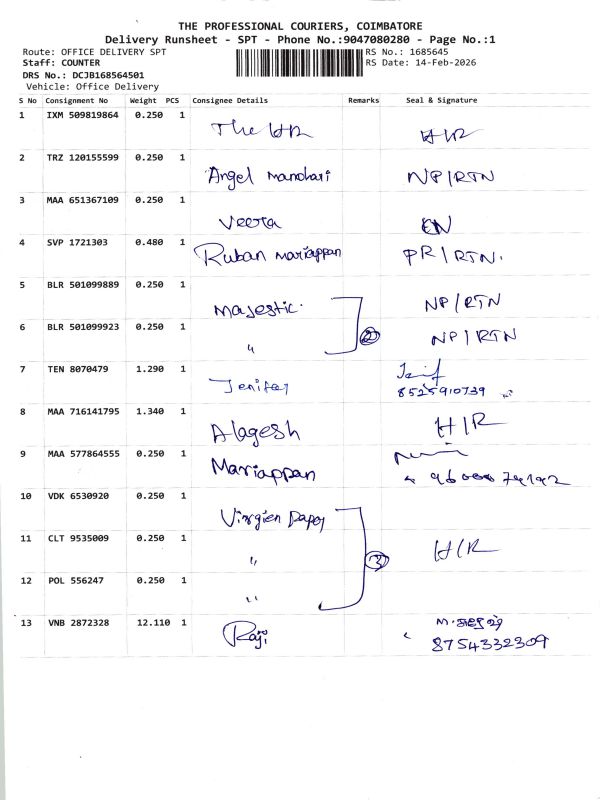 THE PROFESSIONAL COURIERS, COIMBATORE
Delivery Runsheet - SPT - Phone No.:9047080280 - Page No.:1
Route: OFFICE DELIVERY SPT RS No.: 1685645
Staff: COUNTER RS Date: 14-Feb-2026
DRS No.: DCJB168564501
Vehicle: Office Delivery
S No Consignment No Weight PCS Consignee Details Remarks Seal & Signature
1 IXM 509819864 0.250 1 The HR H/R
2 TRZ 120155599 0.250 1 Angel Manohari NP/RTN
3 MAA 651367109 0.250 1 Veera
4 SVP 1721303 0.480 1 Ruban Mariappan PR/RTN.
5 BLR 501099889 0.250 1 Majestic. NP/RTN
6 BLR 501099923 0.250 1 " 2 NP/RTN
7 TEN 8070479 1.290 1 Jenifer 8525910739
8 MAA 716141795 1.340 1 Alagesh H/R
9 MAA 577864555 0.250 1 Mariappan
10 VDK 6530920 0.250 1 Virgien Paper
11 CLT 9535009 0.250 1 " 3 H/R
12 POL 556247 0.250 1 "
13 VNB 2872328 12.110 1 Raji 8754332309